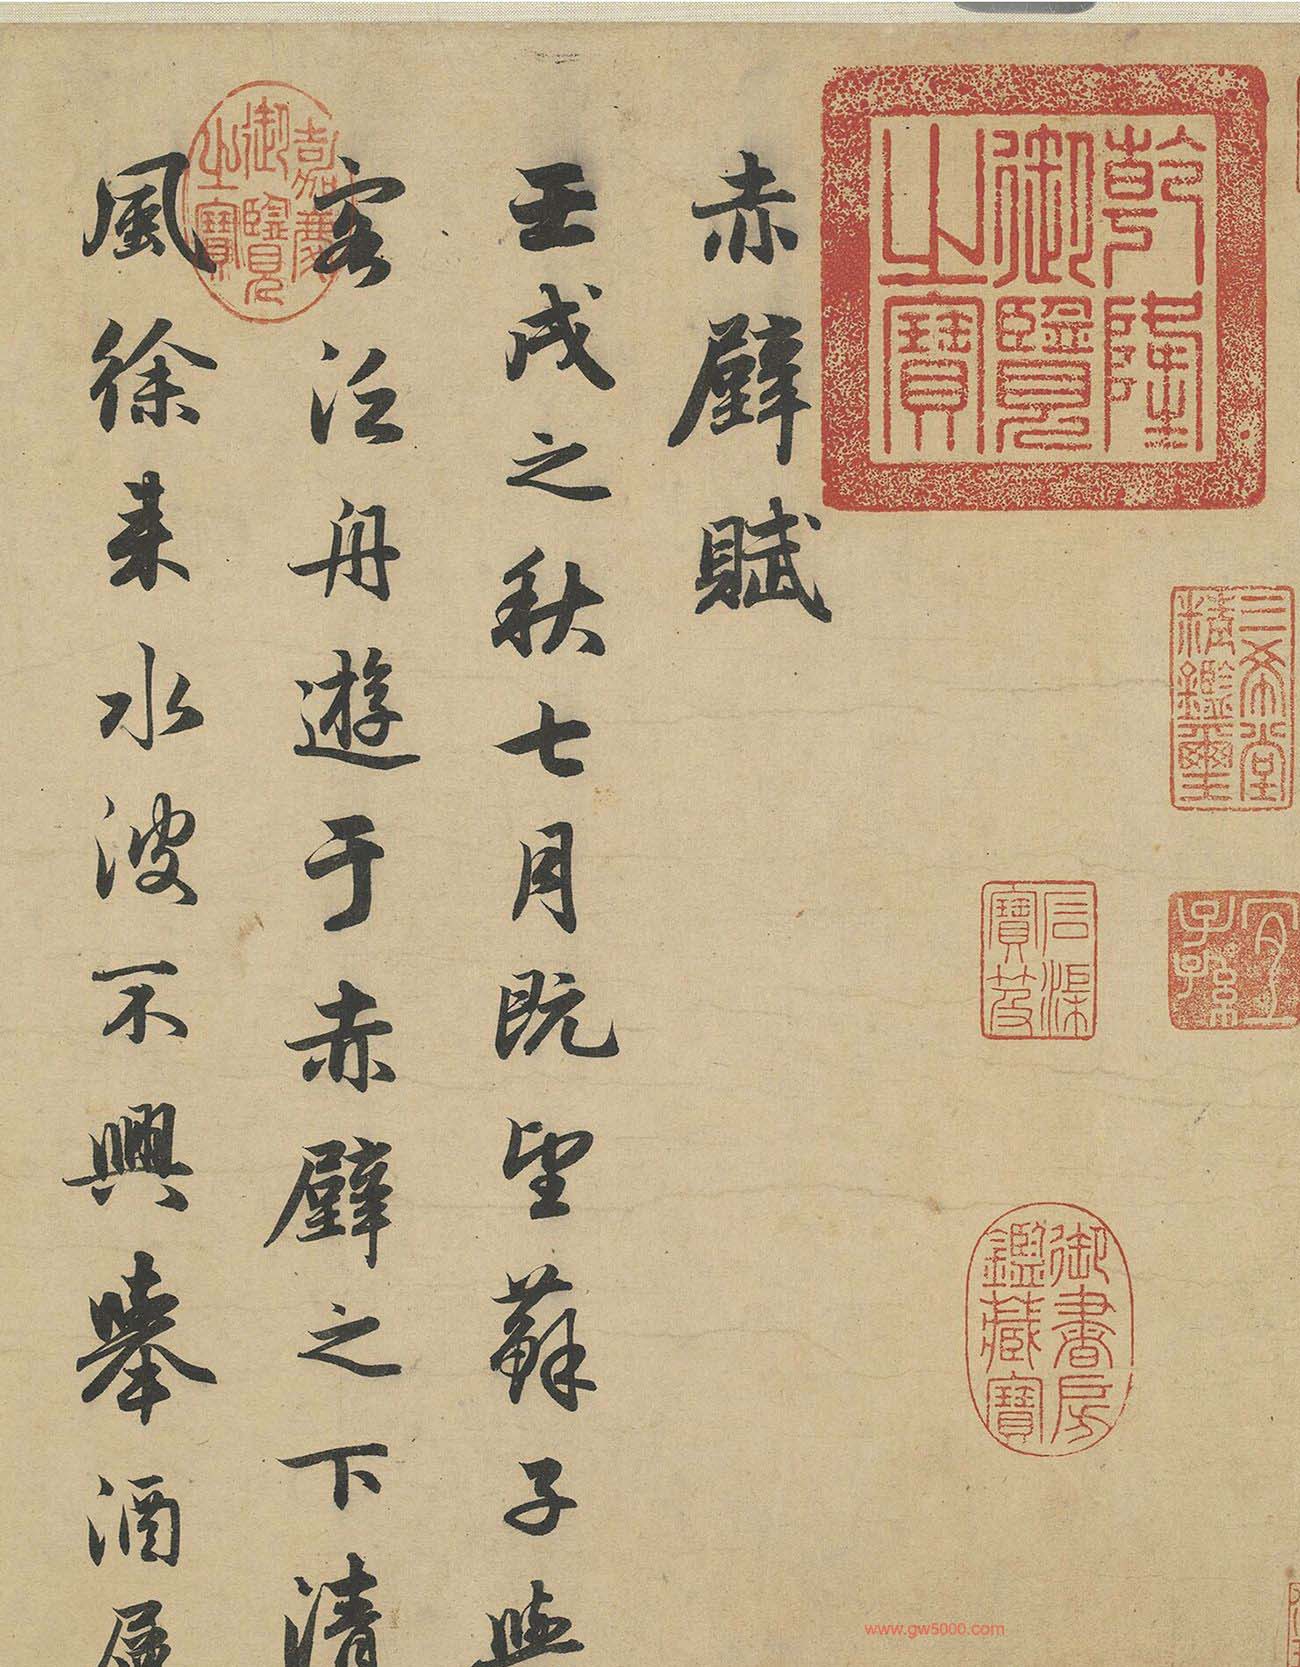 乾隆
御覽
之寶
三希堂
精鑑璽
宜
子孫
御書房
鑑藏寶
赤壁賦
壬戌之秋七月既望蘇子與
客泛舟遊于赤壁之下清
嘉慶
御覽
之寶
風徐来水波不興舉酒屬
www.gw5000.com